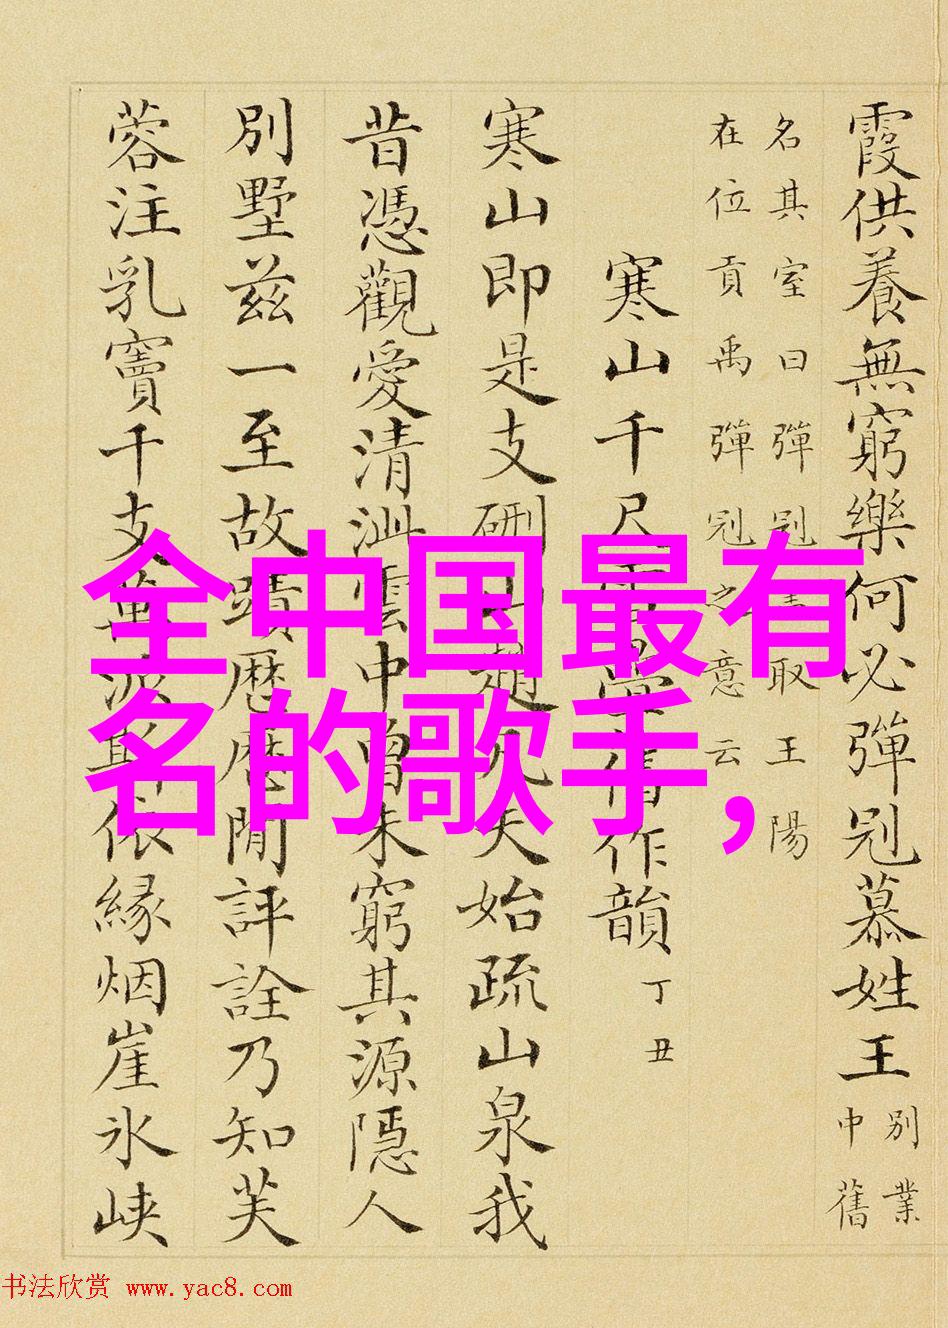 霞供養無窮樂何必彈冠慕姓王
別業
中舊
名其室曰彈冠取王陽
在位貢禹彈冠之意云
寒山千尺雪疊舊作韻 丁丑
寒山即是支硎山趙凡夫始疏山泉我
昔憑觀愛清泚雲中曾未窮其源隱人
別墅茲一至故蹟歷歷閒評詮乃知芙
蓉注乳竇千支萬派斯依緣烟崖氷峽
全中国最有
名的歌手,
书法欣赏 www.yac8.com